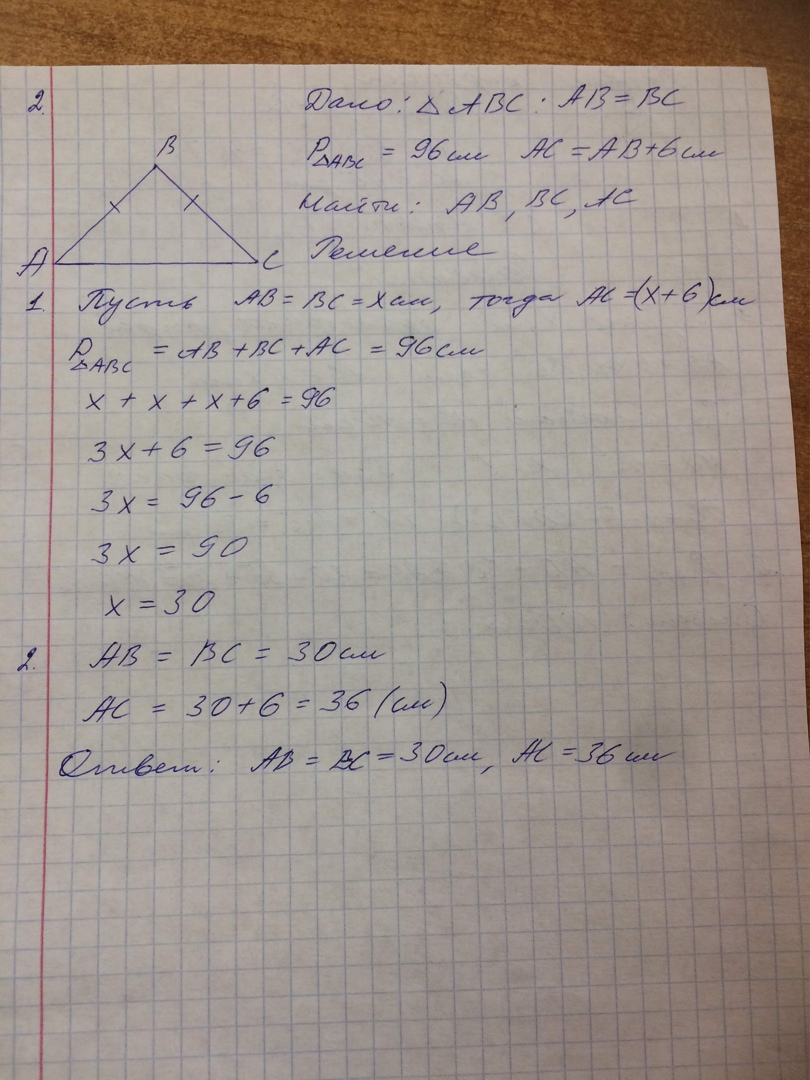 2.
Дано: △ ABC: AB = BC
P△ABC = 96 см AC = AB + 6 см
Найти: AB, BC, AC
Решение
B
A
C
1. Пусть AB = BC = x см, тогда AC = (x + 6) см
P△ABC = AB + BC + AC = 96 см
x + x + x + 6 = 96
3x + 6 = 96
3x = 96 - 6
3x = 90
x = 30
2. AB = BC = 30 см
AC = 30 + 6 = 36 (см)
Ответ: AB = BC = 30 см, AC = 36 см